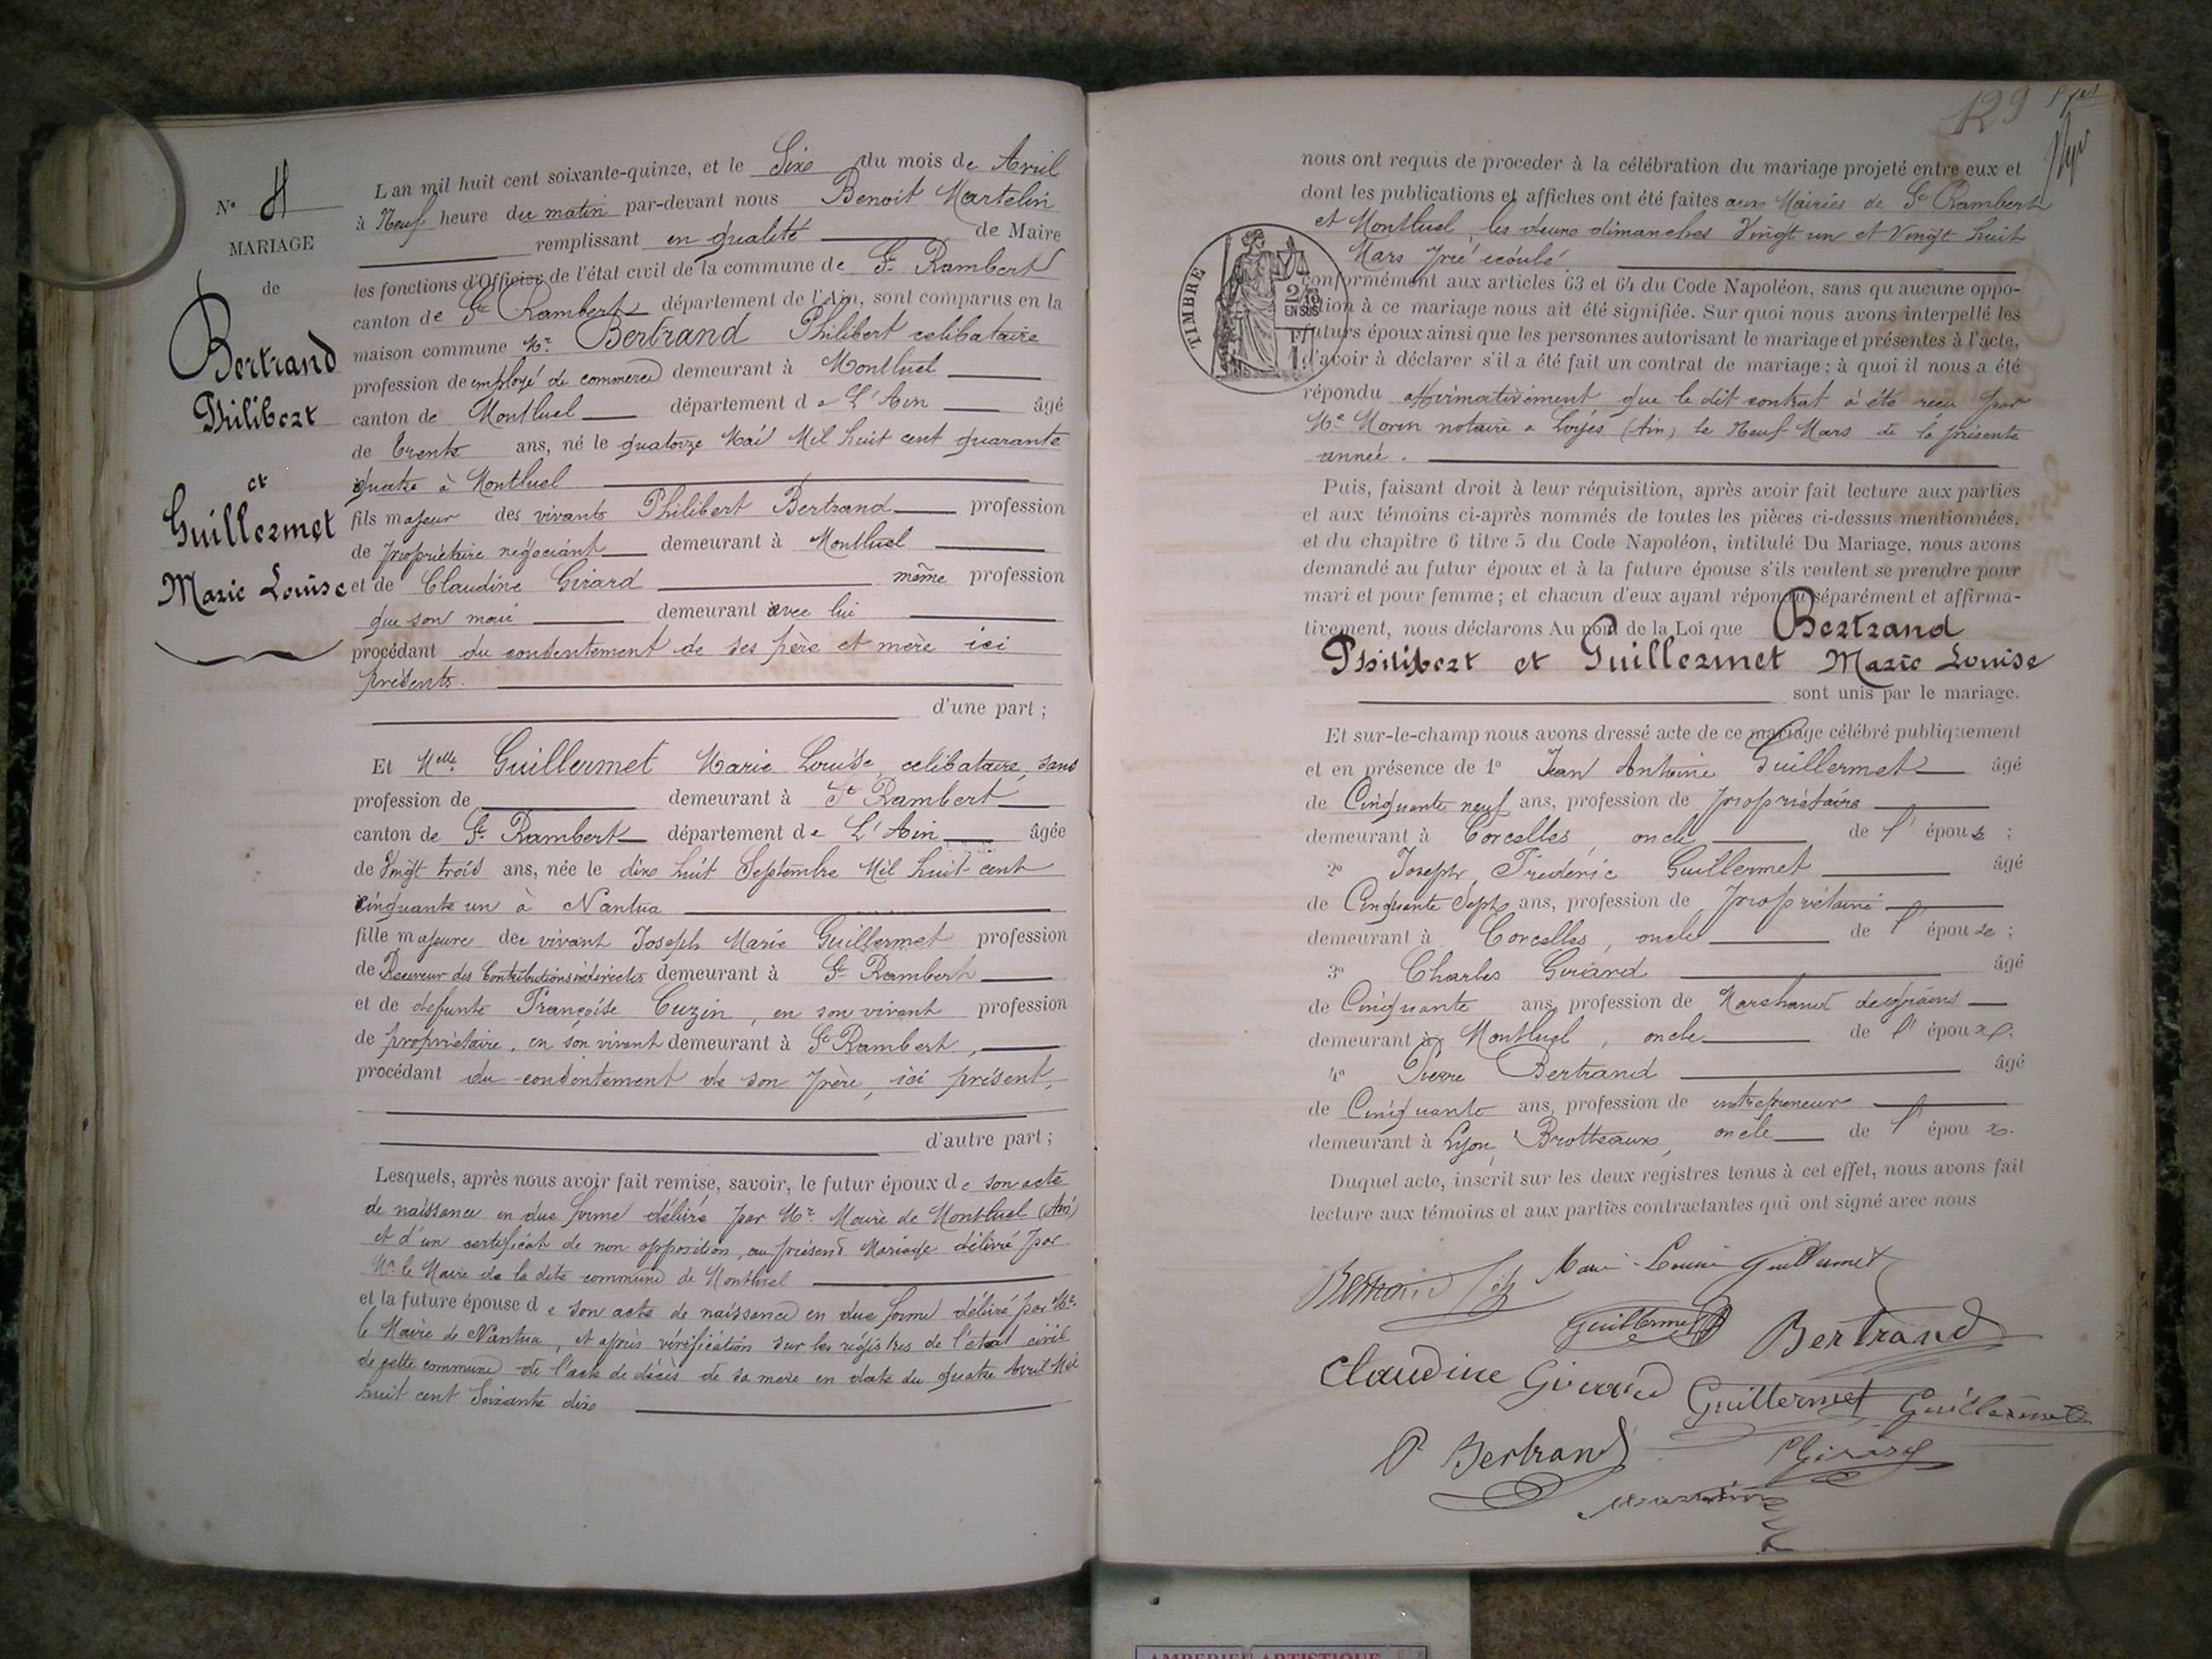 N° 4
MARIAGE
de
Bertrand
Philibert
et
Guillermet
Marie Louise
L'an mil huit cent soixante-quinze, et le Six du mois de Avril
à Neuf heure du matin par-devant nous Benoit Martelin
remplissant en qualité de Maire
les fonctions d'Officier de l'état civil de la commune de St Rambert
canton de St Rambert département de l'Ain, sont comparus en la
maison commune Mr. Bertrand Philibert celibataire
profession de employé de commerce demeurant à Montluel
canton de Montluel département de L'Ain âgé
de Trente ans, né le quatorze Mai Mil huit cent quarante
quatre à Montluel
fils majeur des vivants Philibert Bertrand profession
de propriétaire négociant demeurant à Montluel
et de Claudine Girard même profession
que son mari demeurant avec lui
procédant du consentement de ses père et mère ici
présents.
d'une part ;
Et Melle Guillermet Marie Louise, celibataire, sans
profession de demeurant à St Rambert
canton de St Rambert département de L'Ain âgée
de Vingt trois ans, née le dix huit Septembre Mil huit cent
cinquante un à Nantua
fille majeure de vivant Joseph Marie Guillermet profession
de Receveur des Contributions indirectes demeurant à St Rambert
et de defunte Françoise Cuzin, en son vivant profession
de propriétaire, en son vivant demeurant à St Rambert,
procédant du consentement de son père, ici présent,
d'autre part ;
Lesquels, après nous avoir fait remise, savoir, le futur époux de son acte
de naissance en due forme délivré par Mr. Maire de Montluel (Ain)
et d'un certificat de non opposition, au présent Mariage délivré par
Mr le Maire de la dite commune de Montluel
et la future épouse de son acte de naissance en due forme délivré par Mr.
le Maire de Nantua, et après vérification sur les régistres de l'état civil
de cette commune de l'acte de décès de sa mère en date du quatre Avril Mil
huit cent Soixante dix
129
nous ont requis de proceder à la célébration du mariage projeté entre eux et
dont les publications et affiches ont été faites aux Mairies de St Rambert
et Montluel, les deux dimanches Vingt un et Vingt huit
Mars écoulé
TIMBRE
2/10 EN SUS
conformément aux articles 63 et 64 du Code Napoléon, sans qu'aucune oppo-
sition à ce mariage nous ait été signifiée. Sur quoi nous avons interpellé les
futurs époux ainsi que les personnes autorisant le mariage et présentes à l'acte,
d'avoir à déclarer s'il a été fait un contrat de mariage ; à quoi il nous a été
répondu affirmativement que le dit contrat à été reçu par
Me Morin notaire a Loyes (Ain) le Neuf Mars de la présente
année.
Puis, faisant droit à leur réquisition, après avoir fait lecture aux parties
et aux témoins ci-après nommés de toutes les pièces ci-dessus mentionnées,
et du chapitre 6 titre 5 du Code Napoléon, intitulé Du Mariage, nous avons
demandé au futur époux et à la future épouse s'ils veulent se prendre pour
mari et pour femme ; et chacun d'eux ayant répondu séparément et affirma-
tivement, nous déclarons Au nom de la Loi que Bertrand
Philibert et Guillermet Marie Louise
sont unis par le mariage.
Et sur-le-champ nous avons dressé acte de ce mariage célébré publiquement
et en présence de 1° Jean Antoine Guillermet âgé
de Cinquante neuf ans, profession de propriétaire
demeurant à Corcelles, oncle de l'épouse ;
2° Joseph Frédéric Guillermet âgé
de Cinquante Sept ans, profession de propriétaire
demeurant à Corcelles, oncle de l'épouse ;
3° Charles Girard âgé
de Cinquante ans, profession de Marchand de grains
demeurant à Montluel, oncle de l'époux ;
4° Pierre Bertrand âgé
de Cinquante ans, profession de entrepreneur
demeurant à Lyon, Brotteaux, oncle de l'époux.
Duquel acte, inscrit sur les deux registres tenus à cet effet, nous avons fait
lecture aux témoins et aux parties contractantes qui ont signé avec nous
Bertrand fils Marie-Louise Guillermet
Guillermet Bertrand
Claudine Girard Guillermet Guillermet
P Bertrand Girard
AMBERIEU ARTISTIQUE